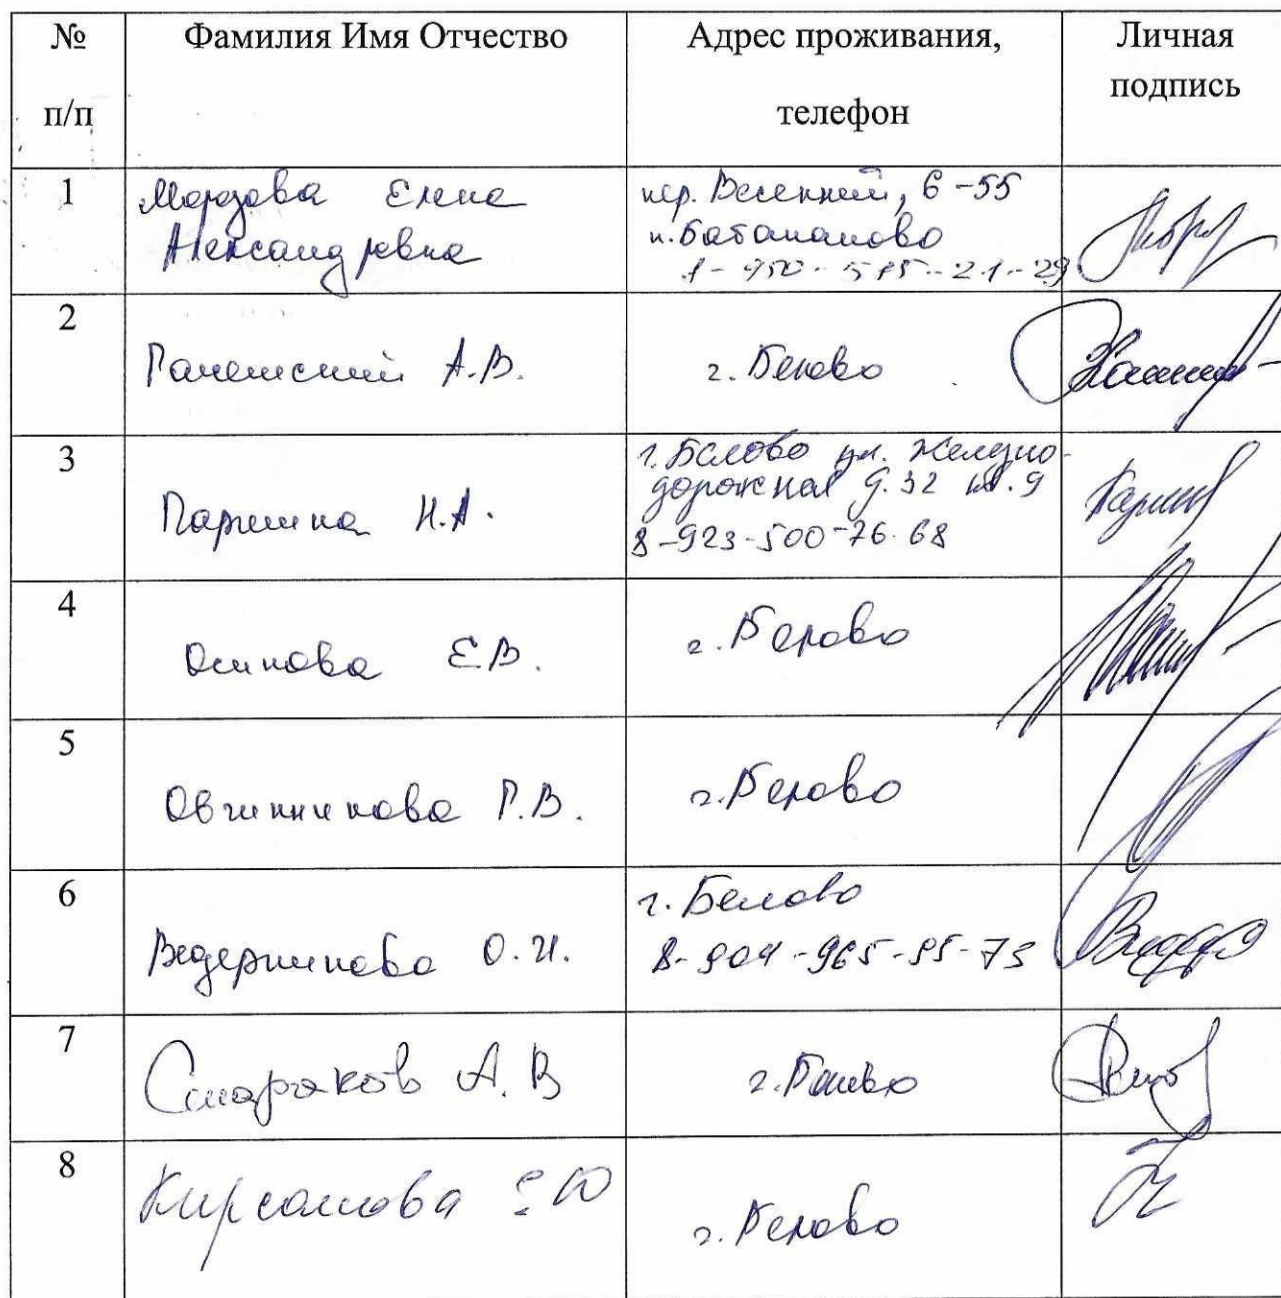 № п/п
Фамилия Имя Отчество
Адрес проживания, телефон
Личная подпись
1
Елена
Александровна
пер. Весенний, 6-55
8-950-585-21-29
2
А.В.
г. Белово
3
Паршина Н.А.
г. Белово ул. Железно-
дорожная д.32 кв.9
8-923-500-76-68
4
Осипова Е.В.
г. Белово
5
Овчинникова Г.В.
г. Белово
6
Ведерникова О.И.
г. Белово
8-904-965-95-73
7
А.В
г. Белово
8
г. Белово